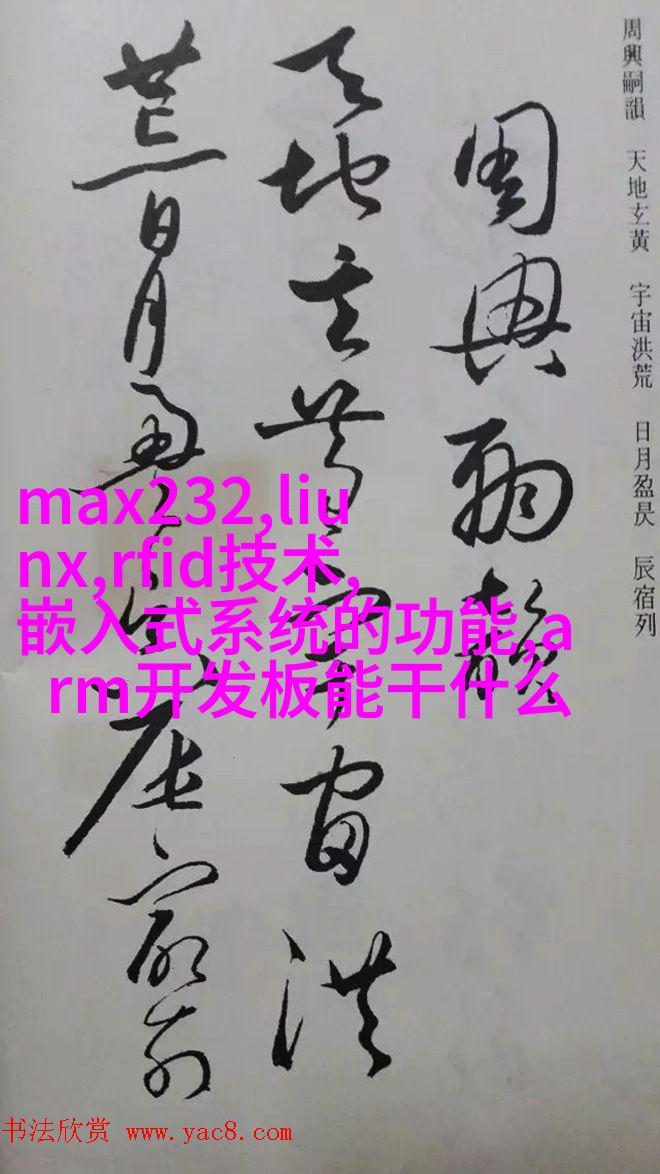 周興嗣韻　天地玄黃　宇宙洪荒　日月盈昃　辰宿列
周興嗣韻
天地玄黃宇宙洪
荒日月盈昃辰宿列
max232,liu
nx,rfid技术,
嵌入式系统的功能,a
rm开发板能干什么
书法欣赏 www.yac8.com